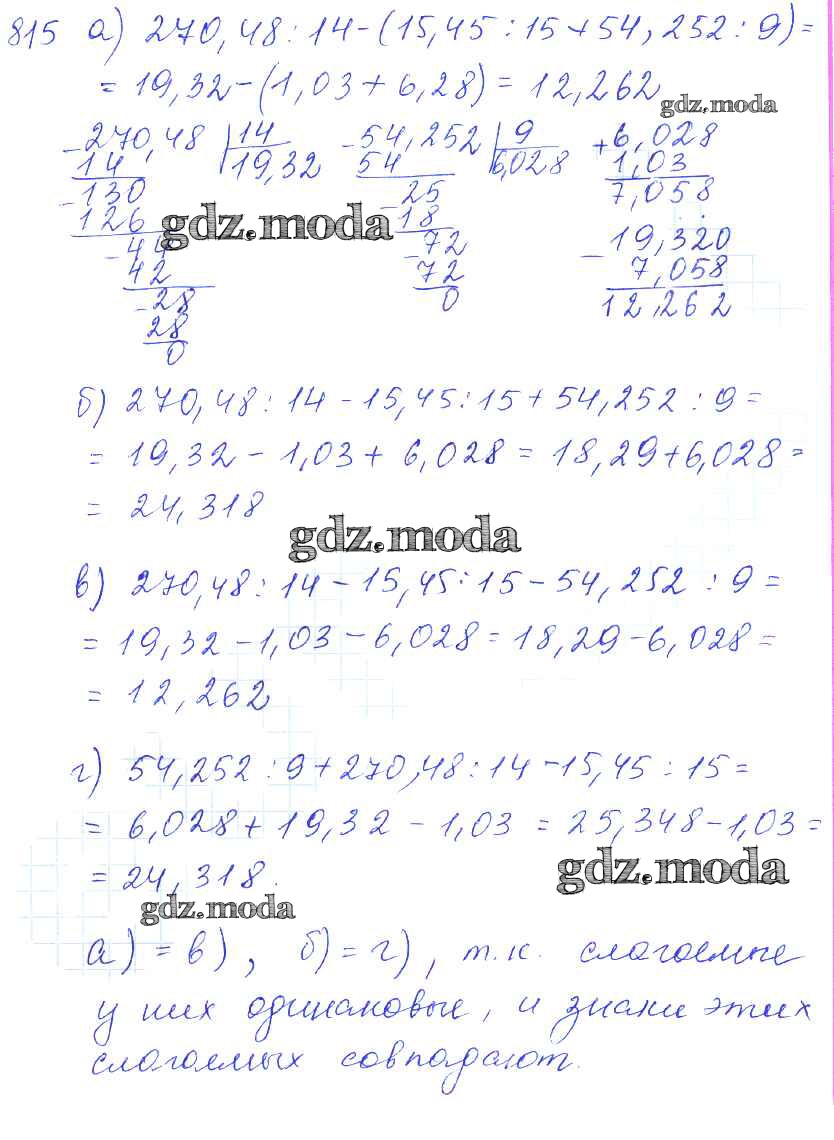 815 а) 270,48 : 14 - (15,45 : 15 + 54,252 : 9) =
= 19,32 - (1,03 + 6,28) = 12,262
gdz.moda
- 270,48 | 14 - 54,252 | 9 + 6,028
14 19,32 54 6,028 1,03
- 130 - 25 7,058
126 18
gdz.moda
- 44 - 72 - 19,320
42 72 7,058
- 28 0 12,262
28
0
б) 270,48 : 14 - 15,45 : 15 + 54,252 : 9 =
= 19,32 - 1,03 + 6,028 = 18,29 + 6,028 =
= 24,318
gdz.moda
в) 270,48 : 14 - 15,45 : 15 - 54,252 : 9 =
= 19,32 - 1,03 - 6,028 = 18,29 - 6,028 =
= 12,262
г) 54,252 : 9 + 270,48 : 14 - 15,45 : 15 =
= 6,028 + 19,32 - 1,03 = 25,348 - 1,03 =
= 24,318.
gdz.moda
gdz.moda
а) = в), б) = г), т.к. слагаемые
у них одинаковые, и знаки этих
слагаемых совпадают.